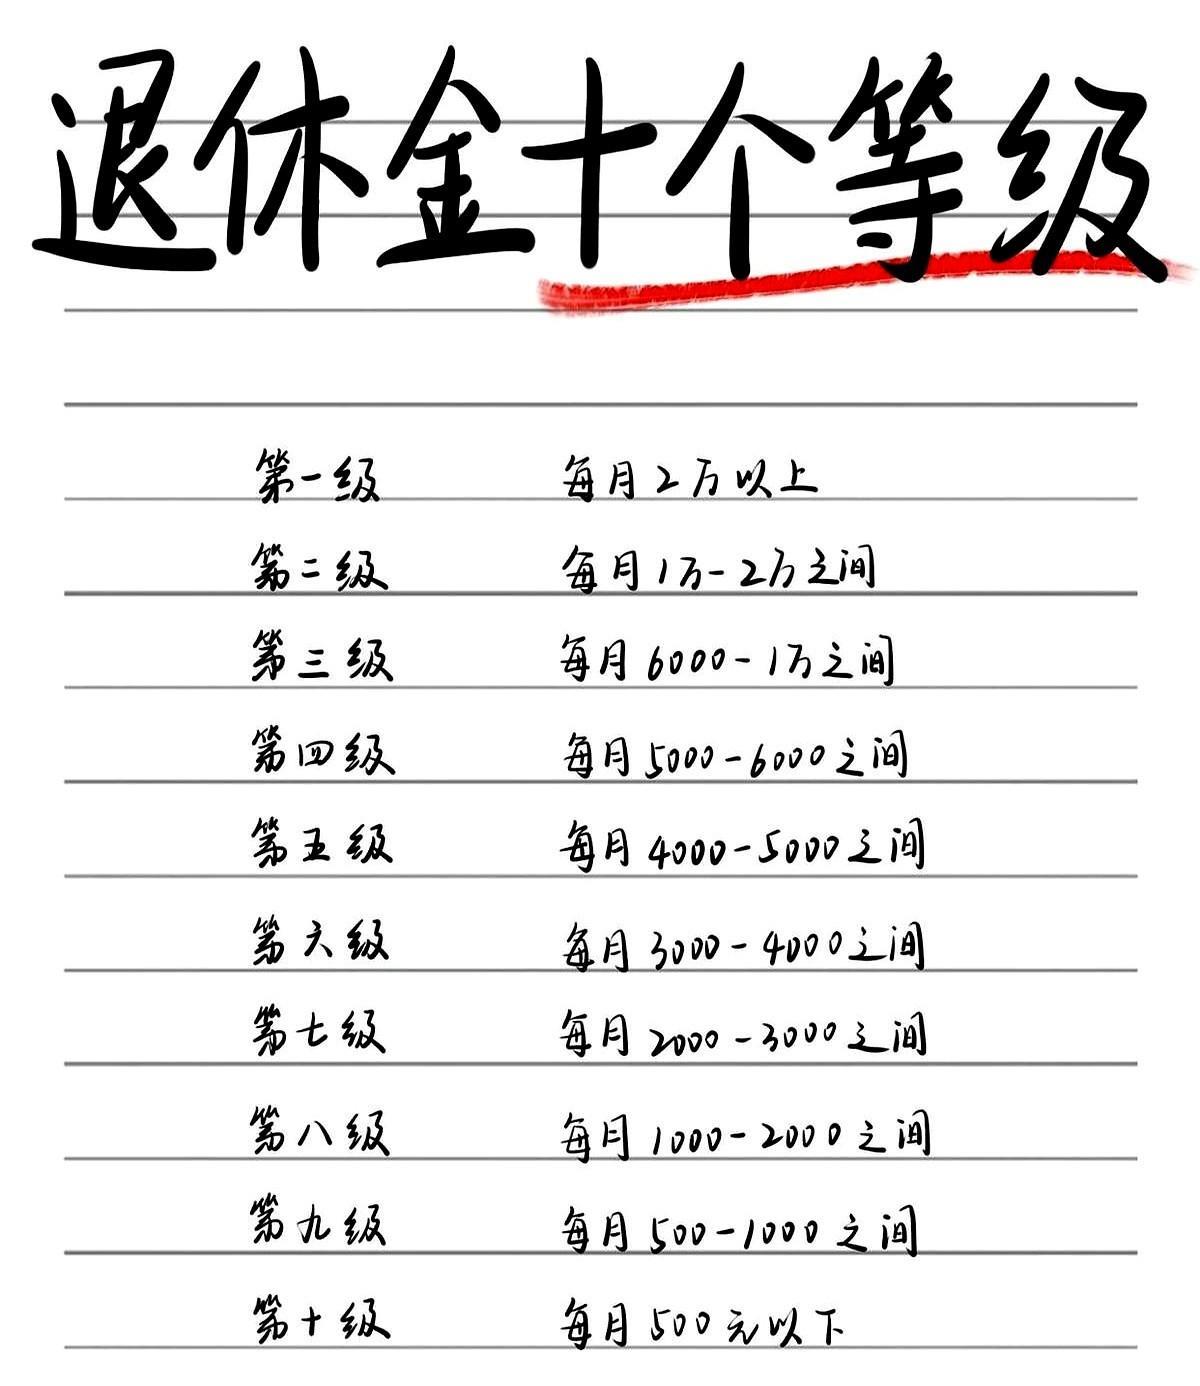 退休金十个等级
第一级 每月2万以上
第二级 每月1万-2万之间
第三级 每月6000-1万之间
第四级 每月5000-6000之间
第五级 每月4000-5000之间
第六级 每月3000-4000之间
第七级 每月2000-3000之间
第八级 每月1000-2000之间
第九级 每月500-1000之间
第十级 每月500元以下